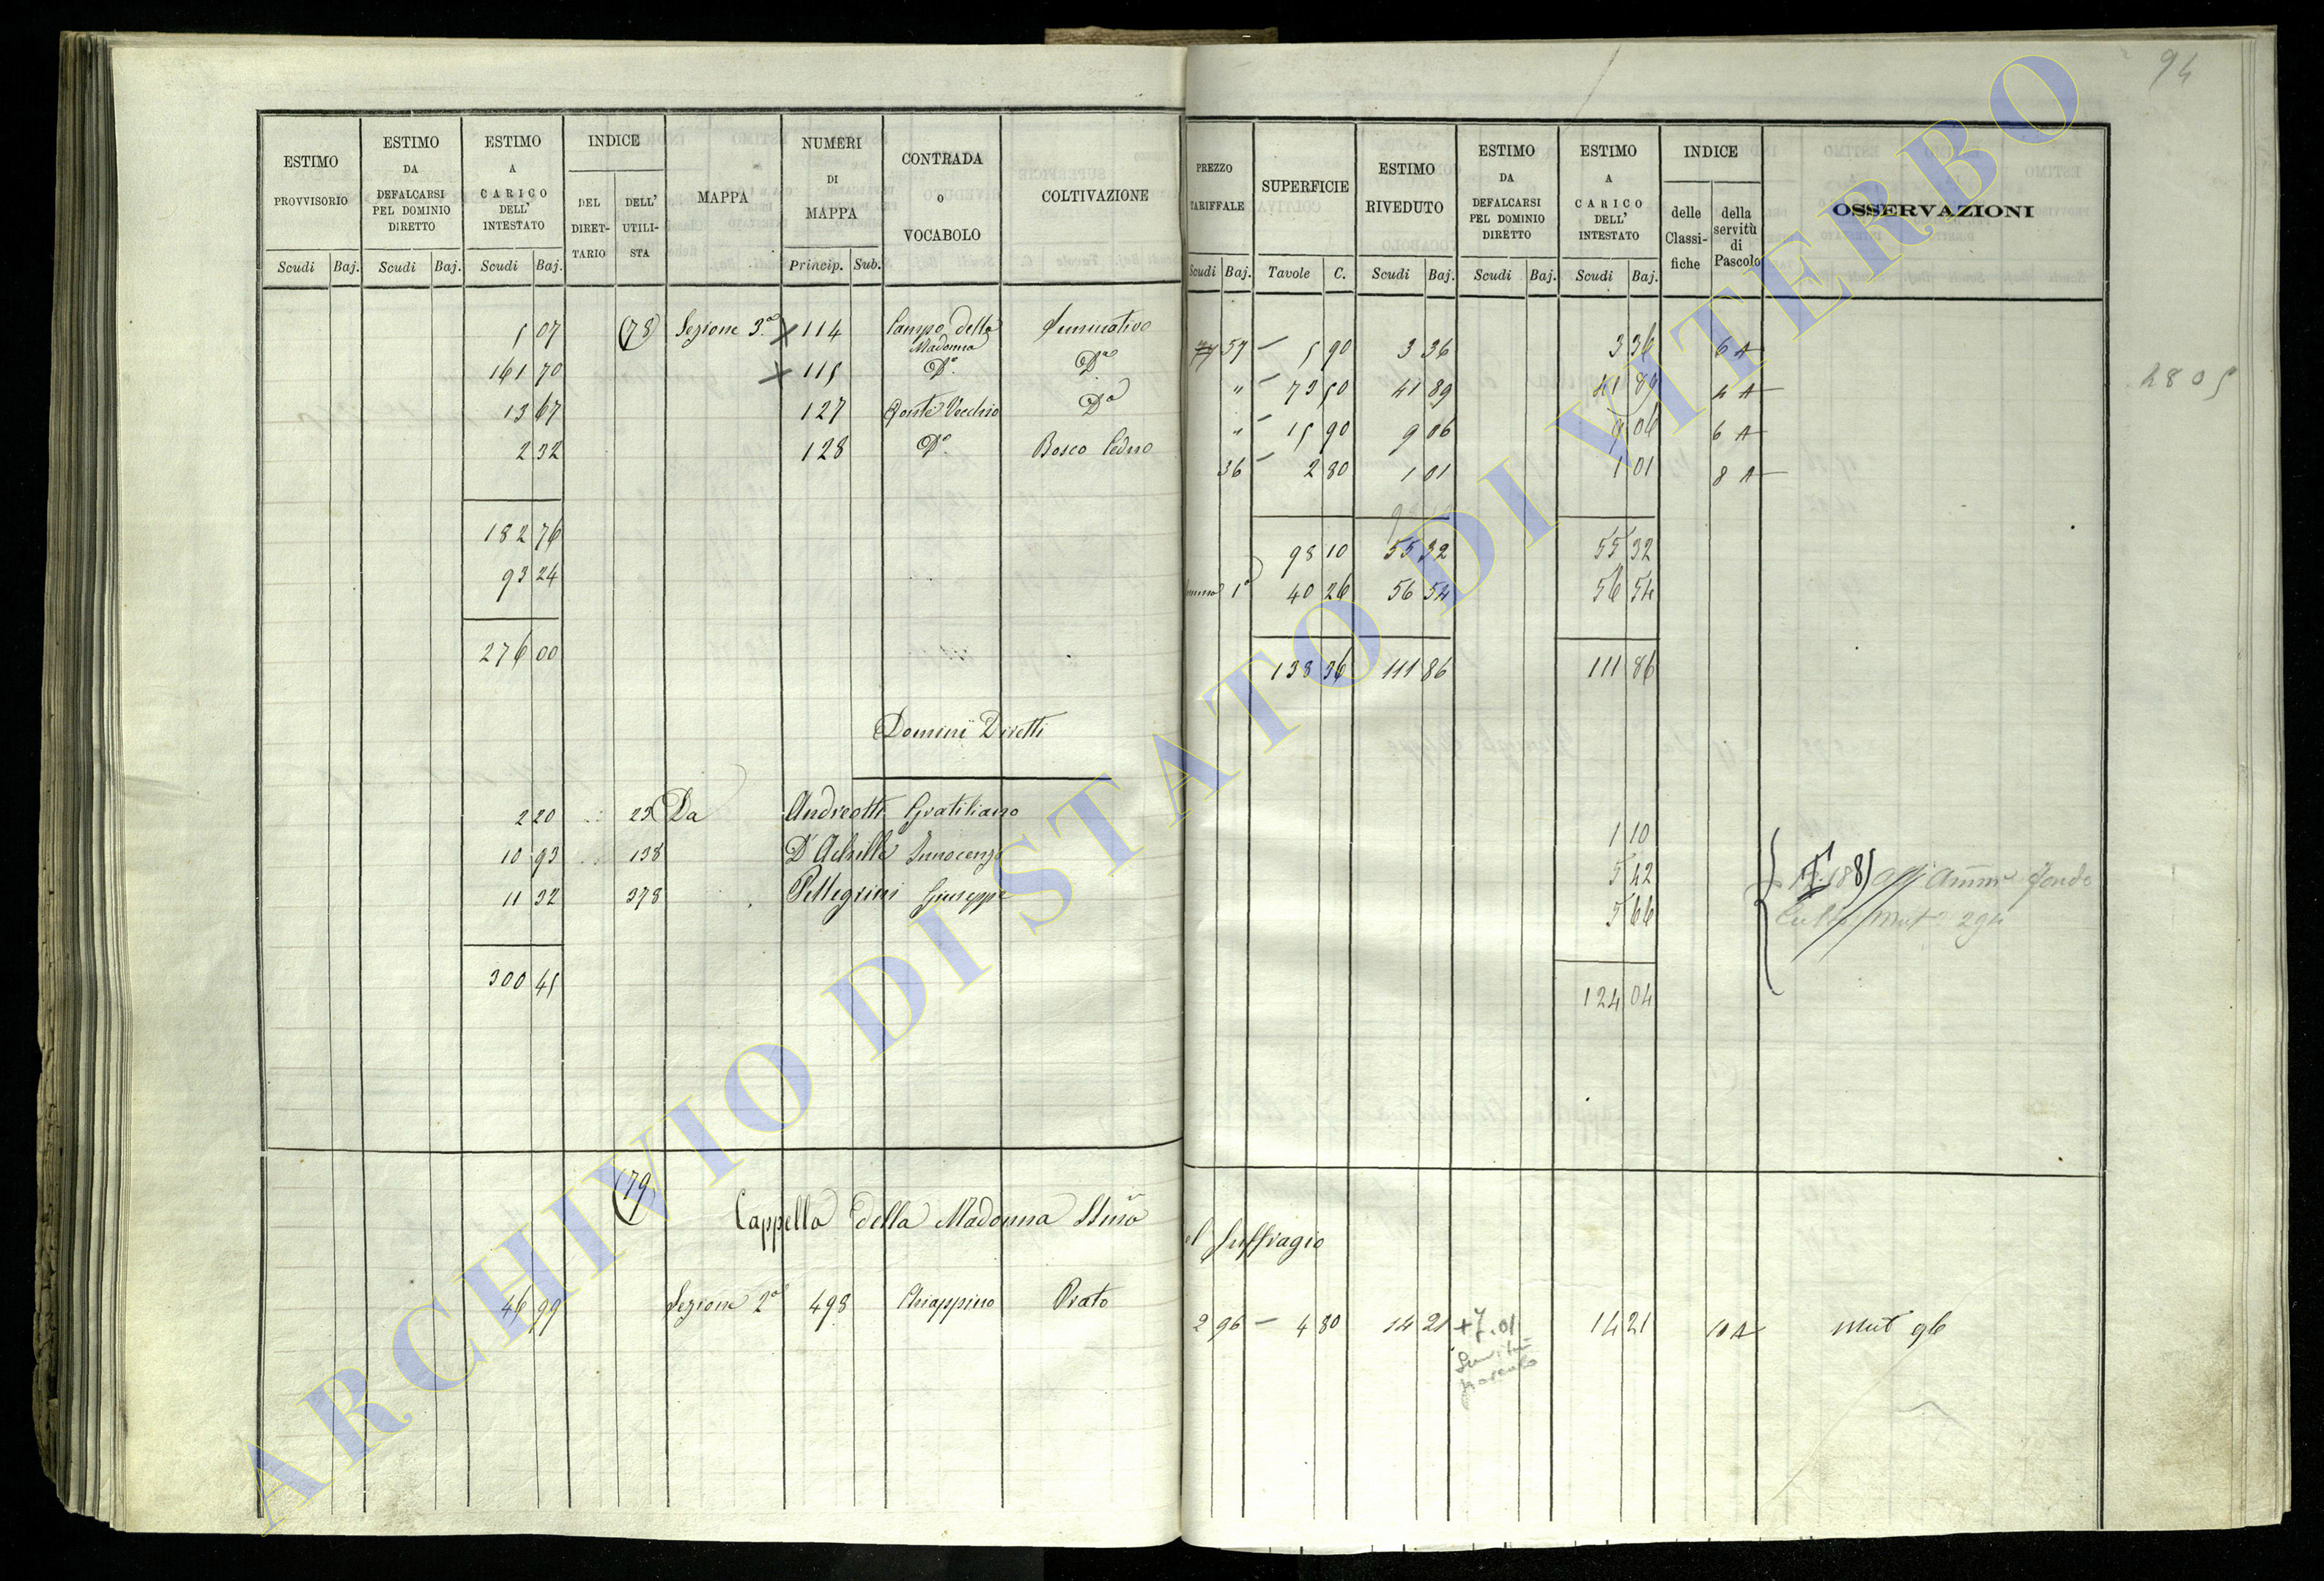 94
ESTIMO PROVVISORIO | ESTIMO DA DEFALCARSI PEL DOMINIO DIRETTO | ESTIMO A CARICO DELL' INTESTATO | INDICE DEL DIRETTARIO | DELL' UTILISTA | MAPPA | NUMERI DI MAPPA | CONTRADA o VOCABOLO | COLTIVAZIONE | PREZZO TARIFFALE | SUPERFICIE | ESTIMO RIVEDUTO | ESTIMO DA DEFALCARSI PEL DOMINIO DIRETTO | ESTIMO A CARICO DELL' INTESTATO | INDICE delle Classifiche | della servitù di Pascolo | OSSERVAZIONI
Scudi | Baj. | Scudi | Baj. | Scudi | Baj. | Princip. | Sub. | Scudi | Baj. | Tavole | C. | Scudi | Baj. | Scudi | Baj. | Scudi | Baj.
5 07 | (78) | Sezione 3.a | 114 | Campo della Madonna | Seminativo | 57 | 5 90 | 3 36 | 3 36 | 6 A
161 70 | 115 | Do. | Do. | " | 73 50 | 41 89 | 41 89 | 4 A
2805
13 67 | 127 | Ponte Vecchio | Do | " | 15 90 | 9 06 | 9 06 | 6 A
2 32 | 128 | Do. | Bosco Ceduo | 36 | 2 80 | 1 01 | 1 01 | 8 A
182 76 | 98 10 | 55 32 | 55 32
93 24 | 1° | 40 26 | 56 54 | 56 54
276 00 | 138 36 | 111 86 | 111 86
Dominii Diretti
2 20 | 23 | Da | Andreotti Gratiliano | 1 10
10 93 | 138 | D'Achille Innocenzo | 5 42
11 32 | 378 | Pellegrini Giuseppe | 5 66
1885 Amm Fondo
Culto Mut 294
300 45 | 124 04
(79
Cappella della Madonna SSma del Suffragio
46 99 | Sezione 2a | 498 | Chiappino | Prato | 2 96 | 4 80 | 14 21 | +7.01 | 14 21 | 10 A | Mut 96
Servitù
pascolo
ARCHIVIO DI STATO DI VITERBO